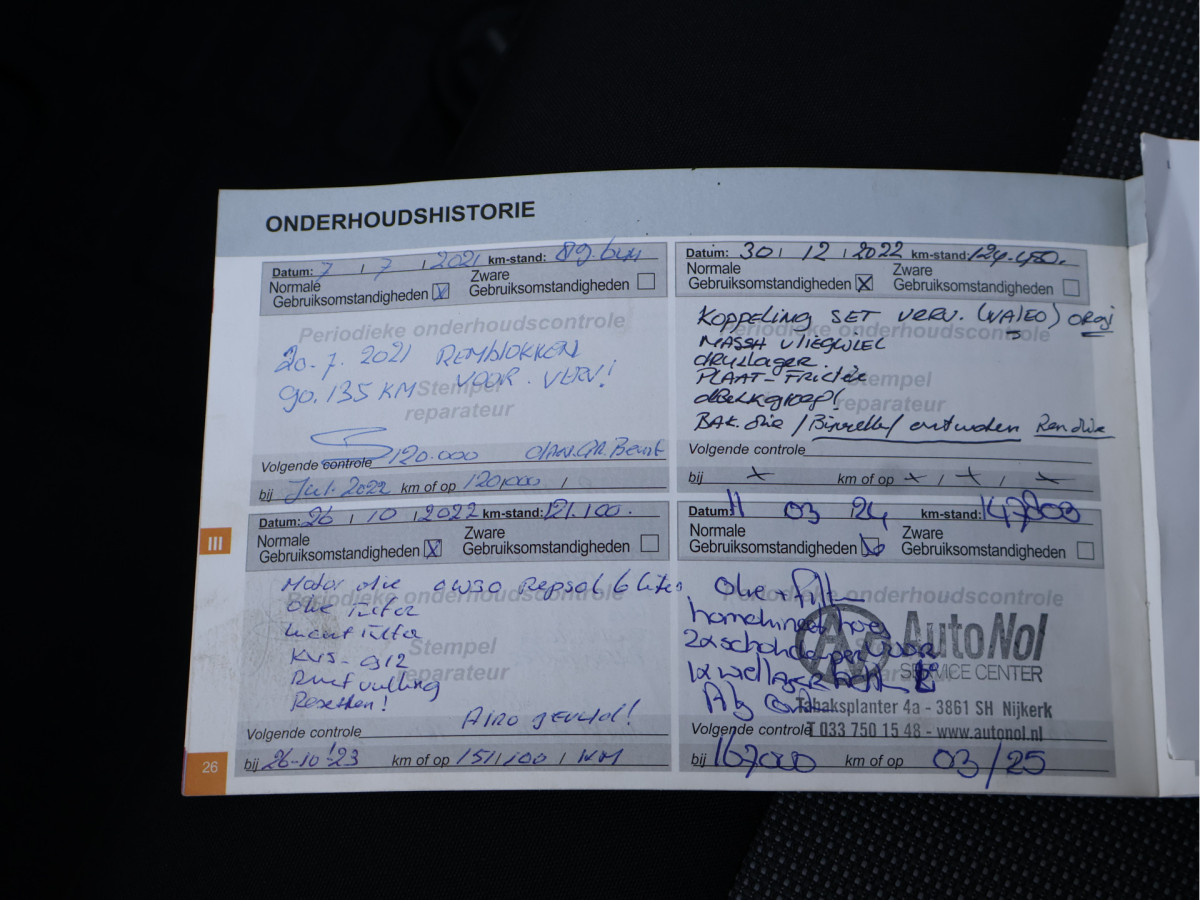 ONDERHOUDSHISTORIE
Datum: 7 / 7 / 2021 km-stand:
Normale Gebruiksomstandigheden
Zware Gebruiksomstandigheden
Periodieke onderhoudscontrole
20.7.2021 REMBLOKKEN
VOOR. VERV!
90.135 KM
Stempel
reparateur
Volgende controle 120.000
bij Jul. 2022 km of op 120,000 /
Datum: 30 / 12 / 2022 km-stand: 124.480.
Normale Gebruiksomstandigheden
Zware Gebruiksomstandigheden
Periodieke onderhoudscontrole
KOPPELING SET VERV. (VALEO)
MASSA VLIEGWIEL
DRUKLAGER
PLAAT-FRICTIE
Stempel
DRUKGROEP!
reparateur
BAK. Olie /
Volgende controle
bij x km of op x / x / x
Datum: 26 / 10 / 2022 km-stand: 121.100.
Normale Gebruiksomstandigheden
Zware Gebruiksomstandigheden
Motor olie 0W30 Repsol 6 liter
Periodieke onderhoudscontrole
Olie Filter
Lucht Filter
Stempel
reparateur
Resetten!
Volgende controle
bij 26-10-'23 km of op 151,100 / KM
Datum: 11 03 24 km-stand: 147.803
Normale Gebruiksomstandigheden
Zware Gebruiksomstandigheden
Periodieke onderhoudscontrole
Olie + Filter
homokineet hoes
AutoNol
2x schokdemper voor
SERVICE CENTER
1x wiellager
Tabaksplanter 4a - 3861 SH Nijkerk
Volgende controle T 033 750 15 48 - www.autonol.nl
bij 167000 km of op 03/25
III
26